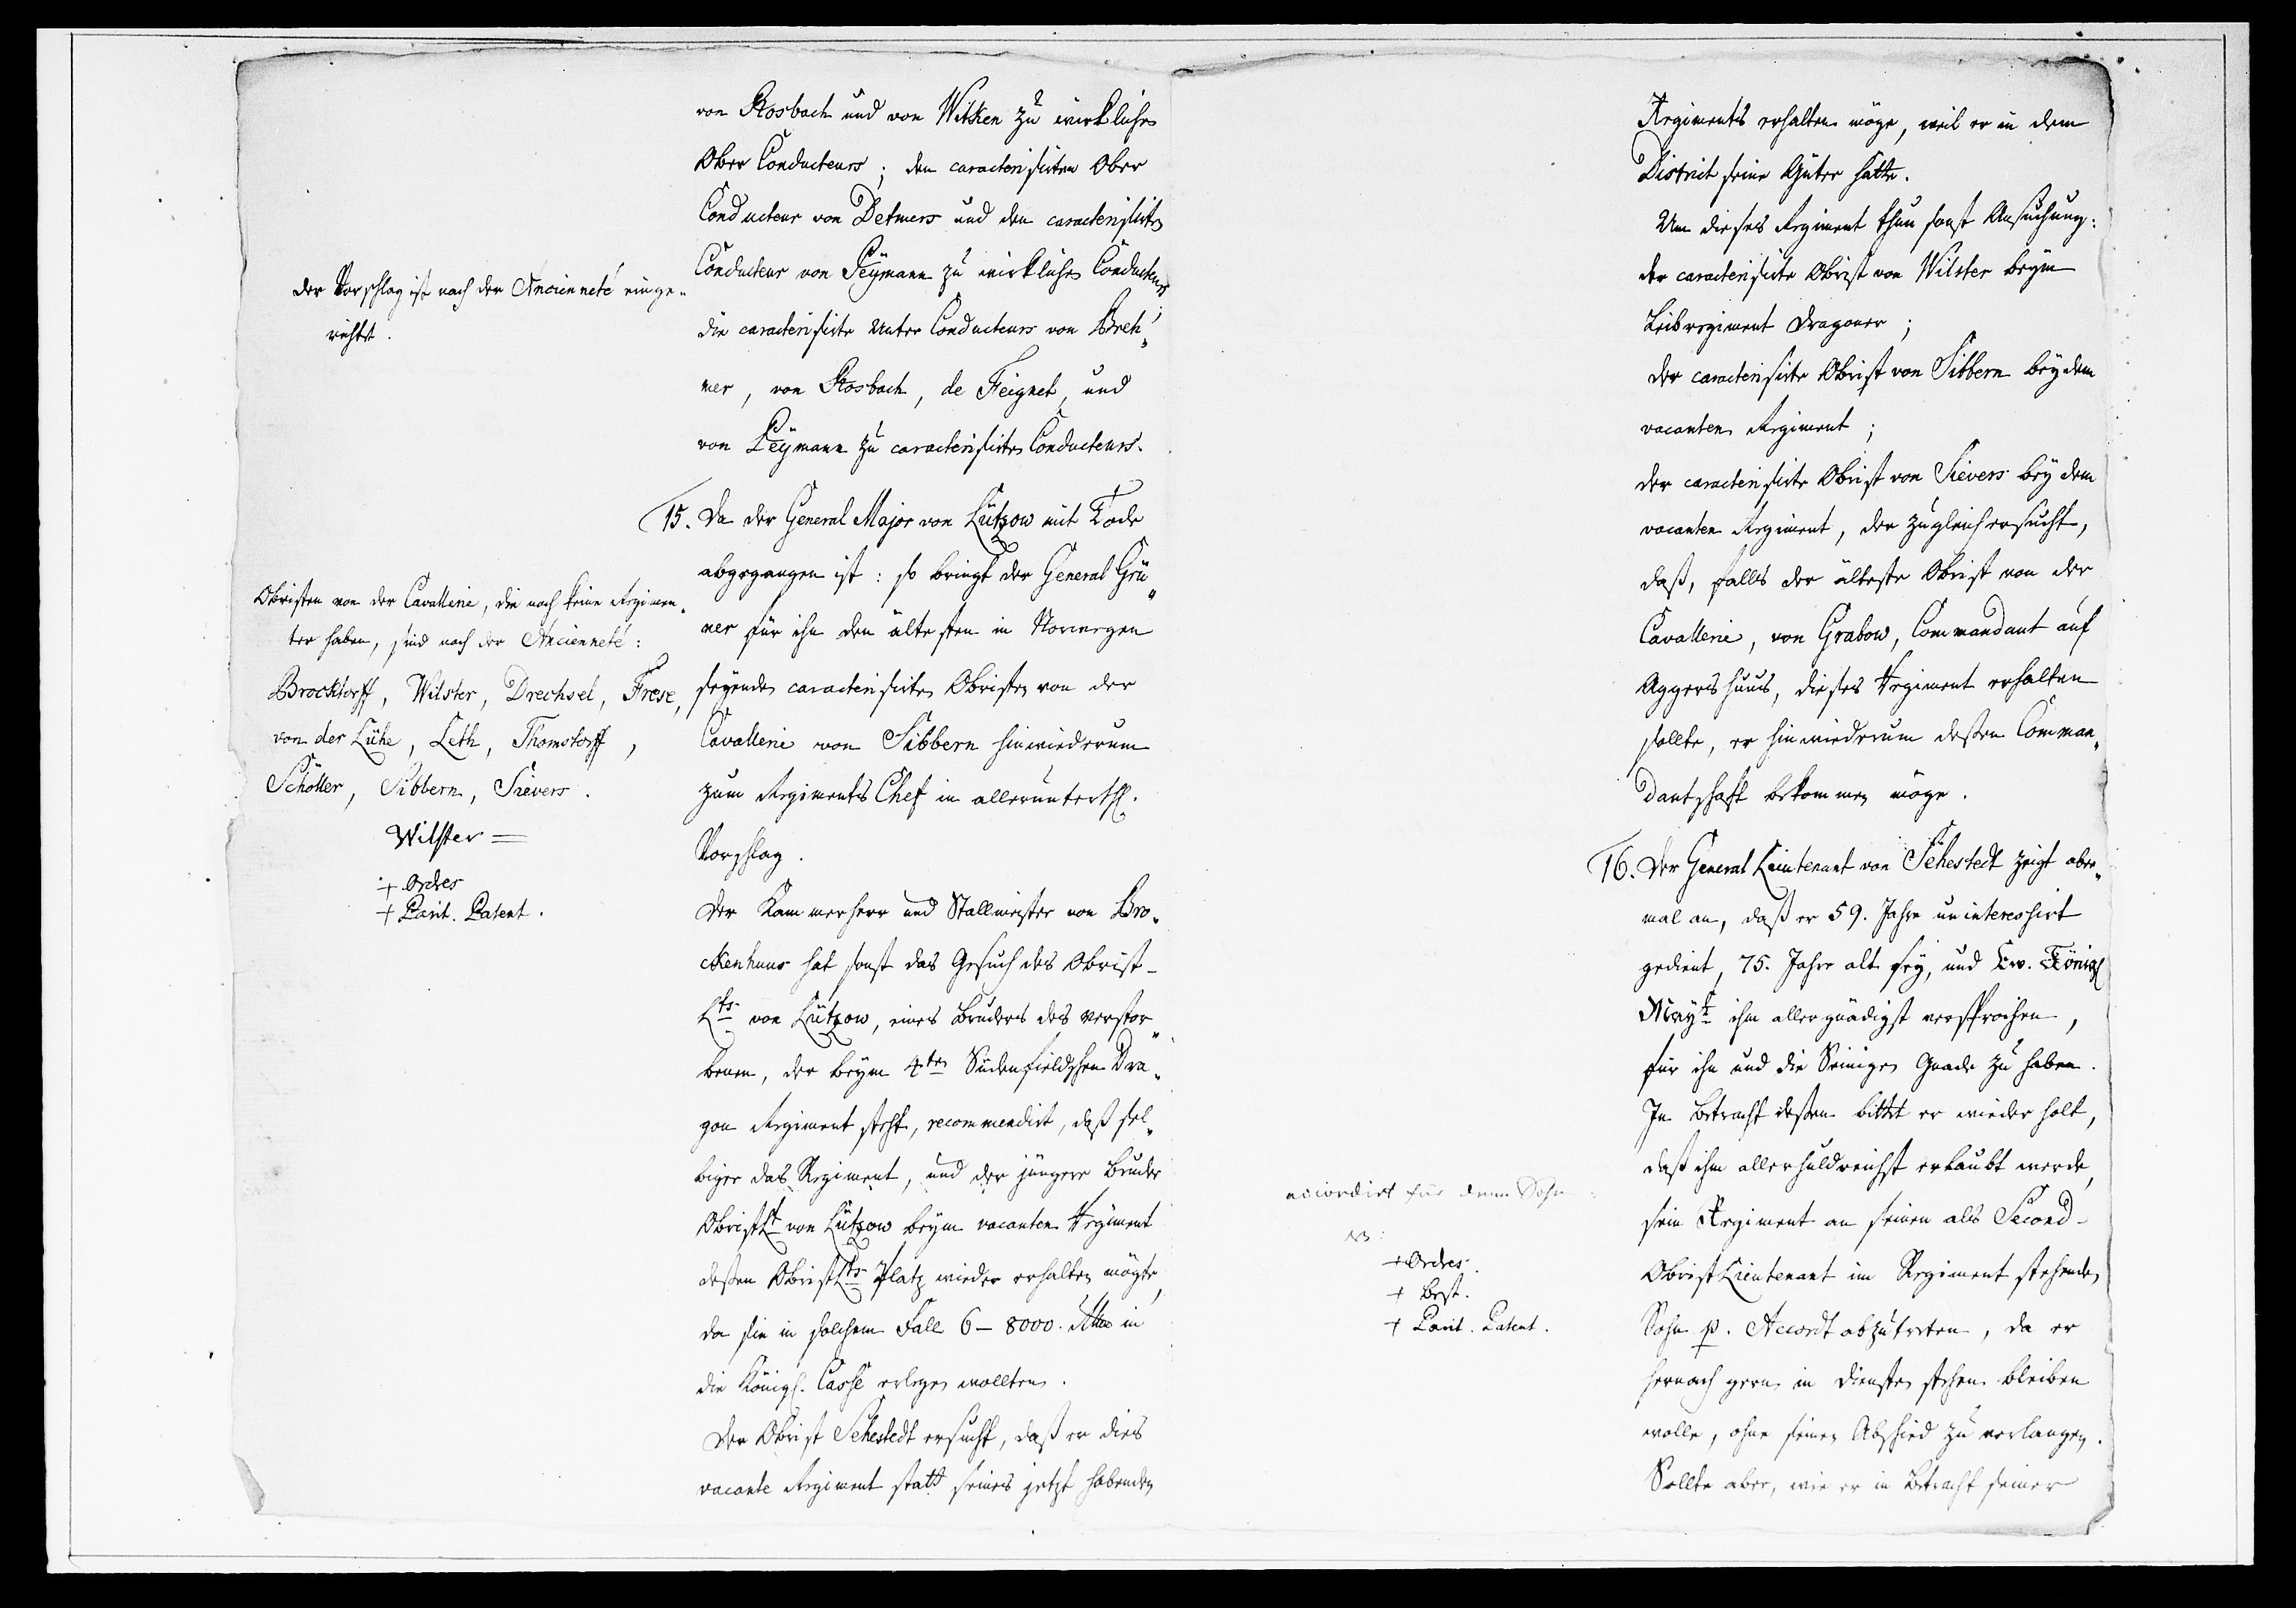 von Rosbach und von Witken zu wirklichen
Ober Conducteurs; den caracterisirten Ober
Conducteur von Detmers und den caracterisirten
Conducteur von Peymann zu wirklichen Conducteurs;
die caracterisirte Unter Conducteurs von Breh„
mer, von Rosbach, de Feignet, und
von Peymann zu caracterisirten Conducteurs.
der Vorschlag ist nach der Ancienneté einge„
richtet.
15. Da der General Major von Lützow mit Tode
abgegangen ist: so bringt der General Grü„
ner für ihn den ältesten in Norwegen
seyenden caracterisirten Obristen von der
Cavallerie von Sibbern hinwiederum
zum Regiments Chef in allerunterth.
Vorschlag.
Obristen von der Cavallerie, die noch keine Regimen„
ter haben, sind nach der Ancienneté:
Brocktorff, Wilster, Drechsel, Frese,
von der Lühe, Leth, Thomstorff,
Schöller, Sibbern, Sievers.
Wilster =
+ Ordres
+ Parit. Patent.
Der Kammerherr und Stallmeister von Bro„
ckenhuus hat sonst das Gesuch des Obrist-
Lts von Lützow, eines Bruders des verstor„
benen, der beym 4ten Südenfieldschen Dra„
gon Regiment steht, recommendirt, daß sel„
biger das Regiment, und der jüngere Bruder
ObristLt von Lützow beym vacanten Regiment
deßen ObristLts Platz wieder erhalten mögte,
da sie in solchem Fall 6 - 8000. in
die Königl. Casse erlegen wollten.
Der Obrist Sehestedt ersucht, daß er dies
vacante Regiment statt seines jetzt habenden
Regiments erhalten möge, weil er in dem
District seine Güter hätte.
Um dieses Regiment thun sonst Ansuchung:
der caracterisirte Obrist von Wilster beym
Leibregiment Dragoner;
der caracterisirte Obrist von Sibbern bey dem
vacanten Regiment;
der caracterisirte Obrist von Sievers bey dem
vacanten Regiment, der zugleich ersucht,
daß, falls der älteste Obrist von der
Cavallerie, von Grabow, Commandant auf
Aggershuus, dieses Regiment erhalten
sollte, er hinwiederum deßen Comman„
dantschaft bekommen möge.
16. Der General Lieutenant von Sehestedt zeigt aber„
mal an, daß er 59. Jahre uninteressirt
gedient, 75. Jahre alt sey, und Ew. Königl
Mayt ihm allergnädigst versprochen,
für ihn und die Seinigen Gnade zu haben.
In Betracht deßen bittet er wiederholt,
daß ihm allerhuldreichst erlaubt werde,
sein Regiment an seinen als Second-
Obrist Lieutenant im Regiment stehenden
Sohn p. Accord abzutreten, da er
hernach gern in Diensten stehen bleiben
wolle, ohne seinen Abschied zu verlangen.
Sollte aber, wie er in Betracht seiner
accordirt für denn Sohn
+ Ordres.
+ Best.
+ Parit. Patent.